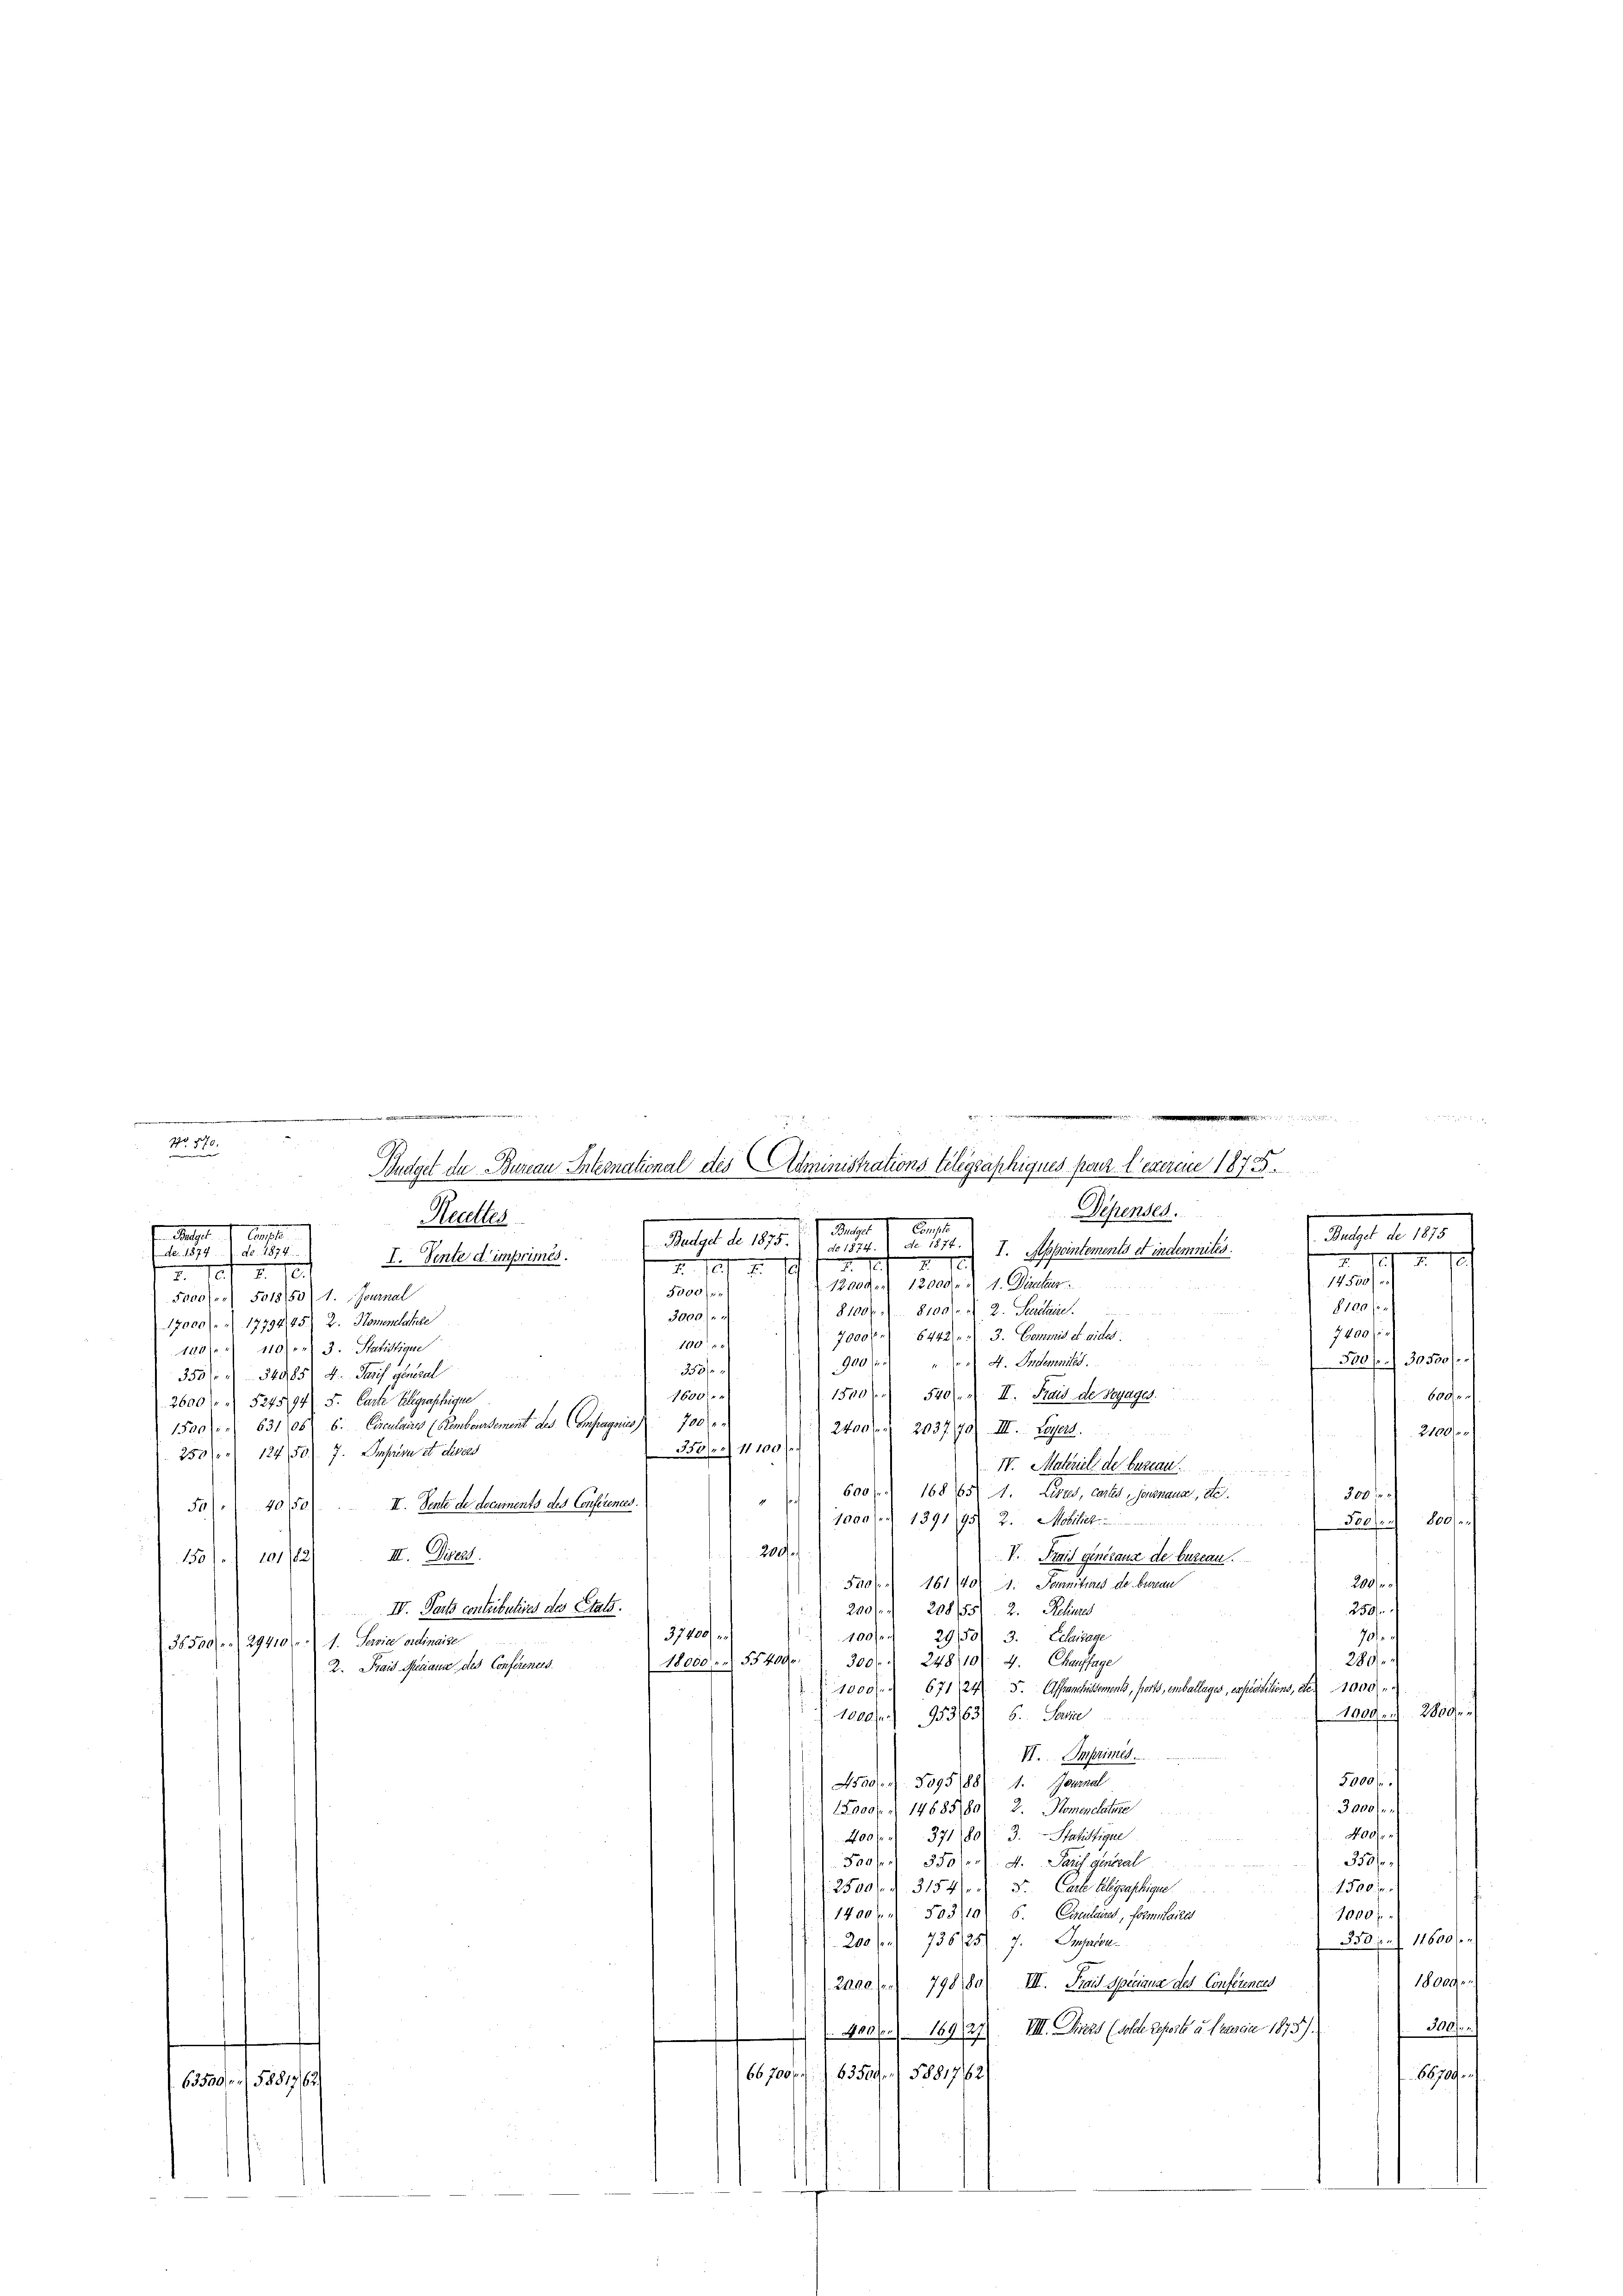 No. 570.
Budget du Bureau International des Administrations télégraphiques pour l'exercice 1875.
Recettes
Budget de 1874 Compte de 1874 Budget de 1875.
F. C. F. C. F. C. F. C.
I. Vente d'imprimés.
5000 " 5018 50 1. Journal 5000 "
17000 " 17794 45 2. Nomenclature 3000 "
100 " 110 " 3. Statistique 100 "
350 " 340 85 4. Tarif général 350 "
2600 " 5245 94 5. Carte télégraphique 1600 "
1500 " 631 06 6. Circulaires (Remboursement des Compagnies) 700 "
250 " 124 50 7. Imprévu et divers 350 " 11 100 "
50 " 40 50 II. Vente de documents des Conférences. " "
150 " 101 82 III. Divers. 200 "
IV. Parts contributives des Etats.
36500 " 29410 " 1. Service ordinaire 37400 "
2. Frais spéciaux des Conférences 18000 " 55400 "
63500 " 58817 62 66700 "
Dépenses.
Budget de 1874. Compte de 1874. Budget de 1875
F. C. F. C. F. C. F. C.
I. Appointements et indemnités.
12000 " 12000 " 1. Directeur. 14500 "
8100 " 8100 " 2. Secrétaire. 8100 "
7000 " 6442 " 3. Commis et aides. 7400 "
900 " " " 4. Indemnités. 500 " 30500 "
1500 " 540 " II. Frais de voyages. 600 "
2400 " 2037 70 III. Loyers. 2100 "
IV. Matériel de bureau.
600 " 168 65 1. Livres, cartes, journaux, etc. 300 "
1000 " 1391 95 2. Mobilier 500 " 800 "
V. Frais généraux de bureau.
500 " 161 40 1. Fournitures de bureau 200 "
200 " 208 55 2. Reliures 250 "
100 " 29 50 3. Eclairage 70 "
300 " 248 10 4. Chauffage 280 "
1000 " 671 24 5. Affranchissements, ports, emballages, expéditions, etc. 1000 "
1000 " 953 63 6. Service 1000 " 2800 "
VI. Imprimés.
4500 " 5095 88 1. Journal 5000 "
15000 " 14685 80 2. Nomenclature 3000 "
400 " 371 80 3. Statistique 400 "
500 " 350 " 4. Tarif général 350 "
2500 " 3154 " 5. Carte télégraphique 1500 "
1400 " 503 10 6. Circulaires, formulaires 1000 "
200 " 736 25 7. Imprévu 350 " 11600 "
2000 " 798 80 VII. Frais spéciaux des Conférences 18000 "
400 " 169 27 VIII. Divers (solde reporté à l'exercice 1875). 300 "
63500 " 58817 62 66700 "